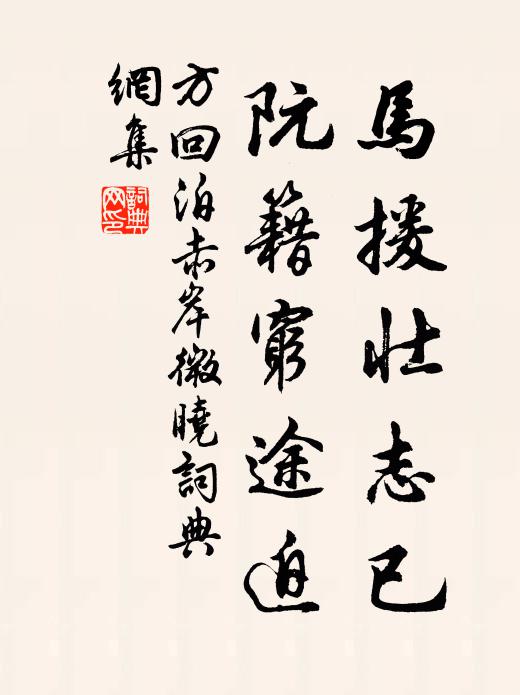 馬援壯志已
阮籍窮途迫
方回泊赤岸微曉詞典
網集
詞典網印